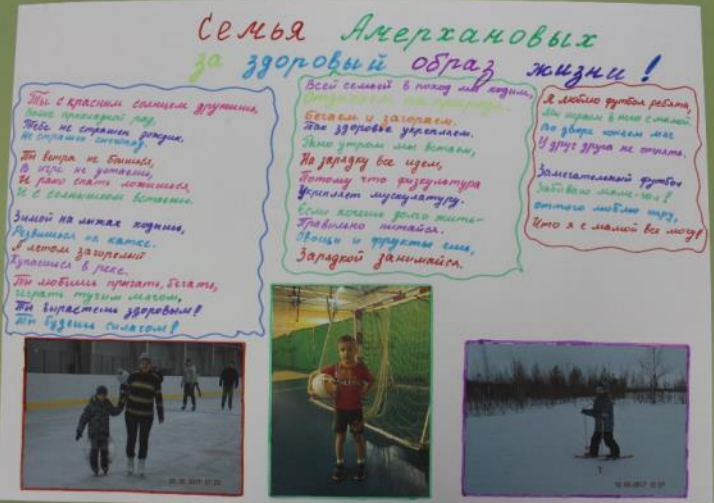 Семья Амерхановых
за здоровый образ жизни!
Ты с красным солнцем дружишь,
прохладой рад,
Тебе не страшен дождик,
Не страшен снегопад.
Ты ветра не боишься,
В игре не устаёшь,
И рано спать ложишься,
И с солнышком встаёшь.
Зимой на лыжах ходишь,
Резвишься на катке.
А летом загорелый
Купаешься в реке.
Ты любишь прыгать, бегать,
Играть тугим мячом,
Ты вырастешь здоровым!
Ты будешь силачом!
Всей семьёй в поход мы ходим,
на природе.
Бегаем и загораем.
Так здоровье укрепляем.
Рано утром мы встаём,
На зарядку все идём,
Потому что физкультура
Укрепляет мускулатуру.
Если хочешь долго жить-
Правильно питайся.
Овощи и фрукты ешь,
Зарядкой занимайся.
Я люблю футбол ребята,
Мы играем в него с мамой.
Во дворе гоняем мяч
У друг друга не отнять.
Замечательный футбол
Забиваю маме-гол!
оттого люблю игру,
Что я с мамой все могу!